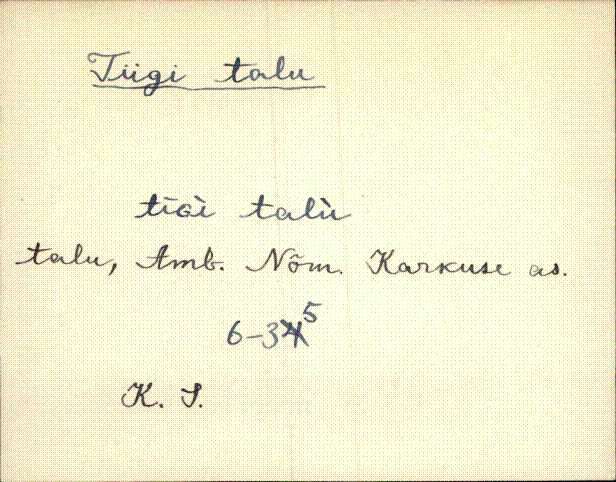 Tiigi talu
tīGi̬ talu̬
talu, Amb. Nõm. Karkuse as.
6-35
K. S.